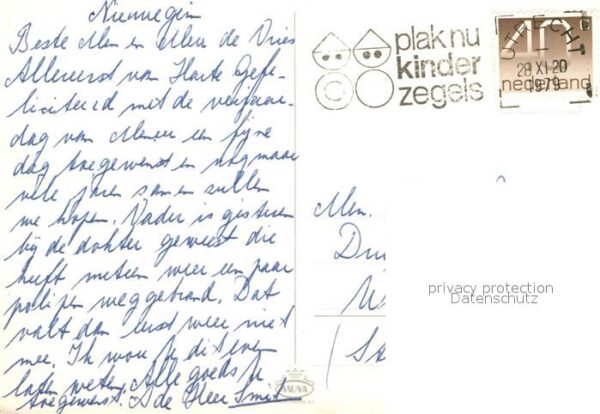 Nieuwegein
Beste Men en Mevr de Vries
Allereerst van Harte Gefe-
liciteerd met de verjaar-
dag van Meneer een fijne
dag toegewenst en nog maar
vele jaren samen zullen
we hopen. Vader is gisteren
bij de dokter geweest die
heeft meteen weer een paar
poliepen weggebrand. Dat
valt dan eerst weer niet
mee. Ik wou je dit even
laten weten. Alle goeds je
toegewenst. A de Heer Smit
plak nu
kinder
zegels
UTRECHT
28 XI 20
1979
nederland
Men.
privacy protection
Datenschutz
HAUVA